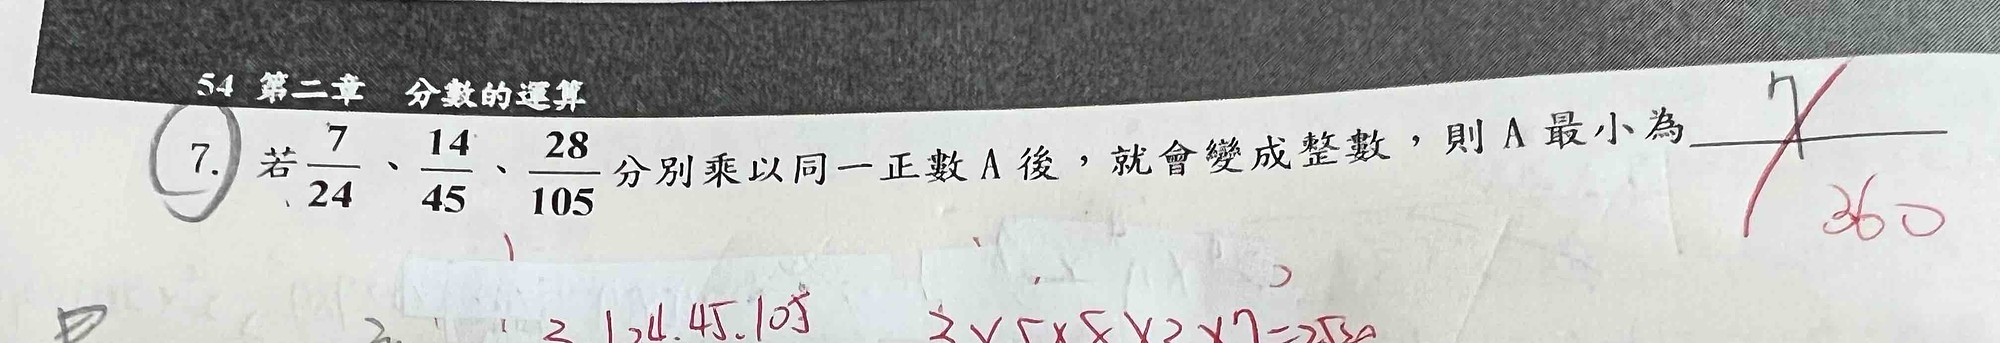 54 第二章 分數的運算
7. 若 7/24、14/45、28/105 分別乘以同一正數 A 後，就會變成整數，則 A 最小為 7
360
3 24.45.105